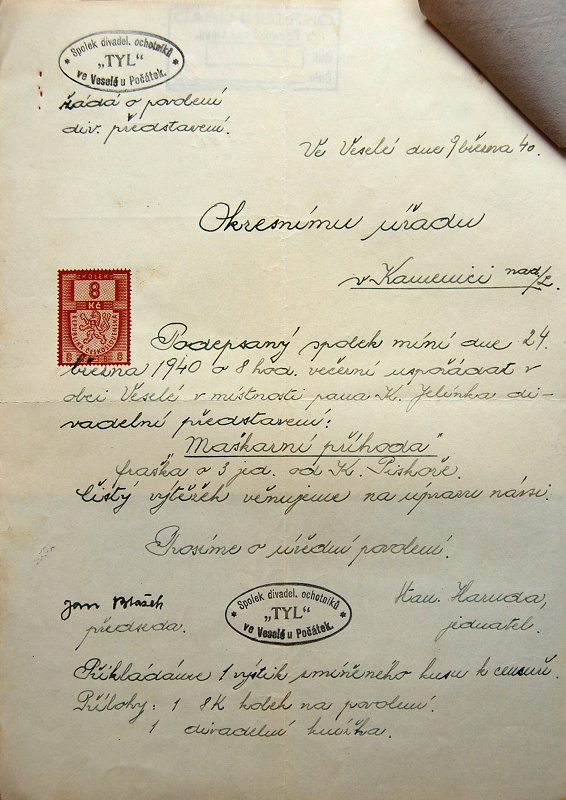 Spolek divadel. ochotníků
„TYL"
ve Veselé u Počátek.
žádá o povolení
div. představení.
Ve Veselé dne 9 března 40.
Okresnímu úřadu
v Kamenici nad/L.
KOLEK
8
Kč
REPUBLIKA ČESKOSLOVENSKÁ
8 8
Podepsaný spolek míní dne 24.
března 1940 o 8 hod. večerní uspořádat v
obci Veselé v místnosti pana K. Jelínka di-
vadelní představení:
„Maškarní příhoda"
fraška o 3 jed. od K. Piskoře.
Čistý výtěžek věnujeme na úpravu návsi.
Prosíme o úřední povolení.
Jan Blažek
předseda.
Spolek divadel. ochotníků
„TYL"
ve Veselé u Počátek.
Stan. Haruda,
jednatel.
Přikládáme 1 výtisk zmíněného kusu k censuře.
Přílohy: 1 8K kolek na povolení.
1 divadelní knížka.